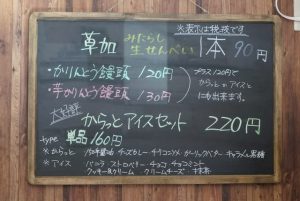 ※表示は税抜です
草加 みたらし 生せんべい 1本 90円
・かりんとう饅頭 120円
・芋かりんとう饅頭 130円
プラス120円で
からっとアイス
にも出来ます。
大好評
からっとアイスセット 220円
type 単品160円
※からっと 和幸醤油 チーズカレー チリコンソメ ガーリックバター キャラメル黒糖
※アイス バニラ ストロベリー チョコ チョコミント
クッキー&クリーム クリームチーズ 抹茶